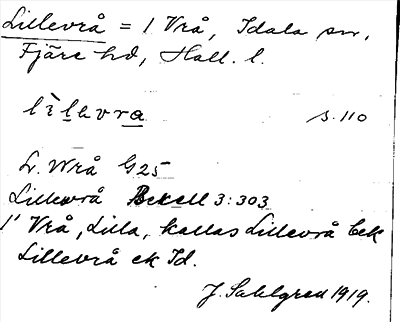 Lillevrå = 1 Vrå, Idala sn,
Fjäre hd, Hall. l.
lìlavra s. 110
L. Wrå G25
Lillewrå Bexell 3:303
1 Vrå, Lilla, kallas Lillevrå bek
Lillevrå ek Id.
J. Sahlgren 1919.